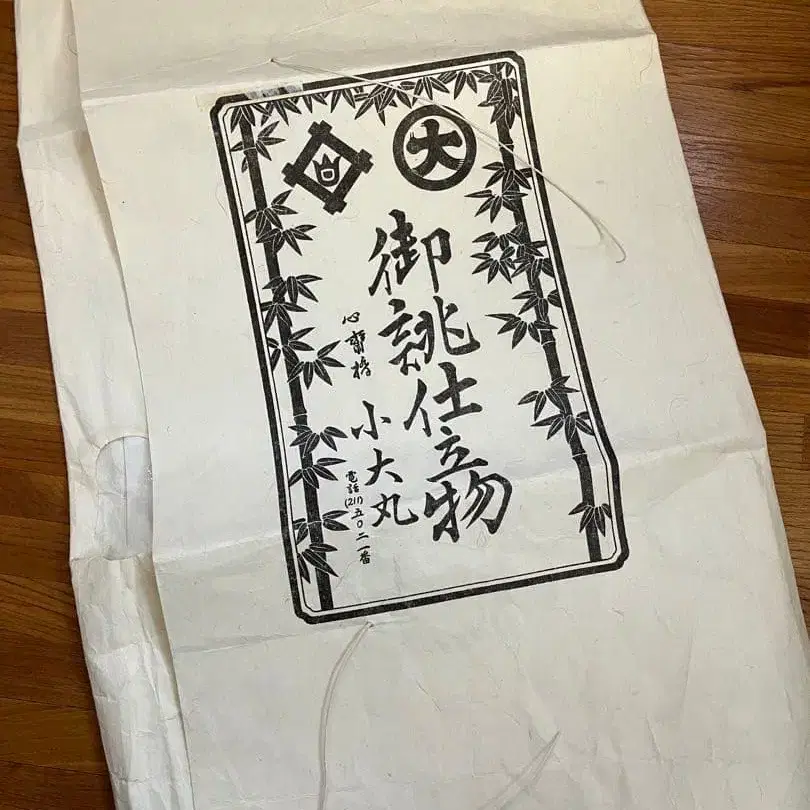 大
御誂仕立物
心斎橋
小大丸
電話(211)五〇二一番